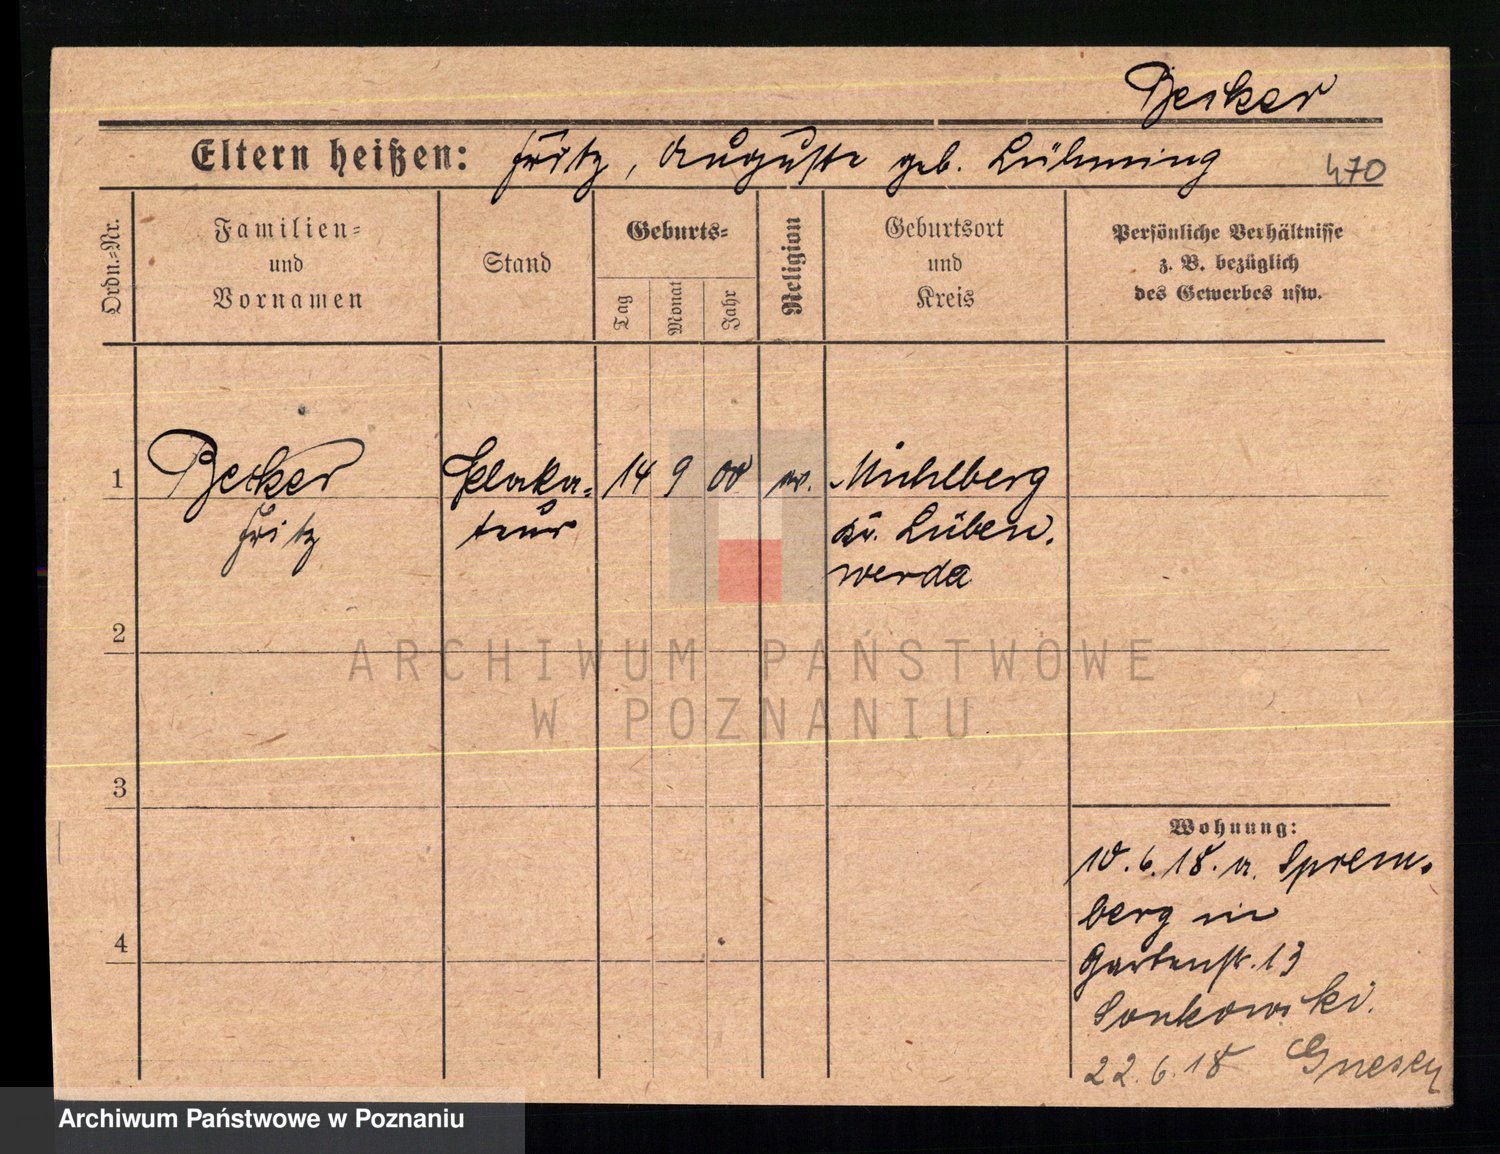 Becker
Eltern heißen: Fritz, Auguste geb. Lühming
470
Ordn.-Nr.
Familien-
und
Vornamen
Stand
Geburts-
Tag
Monat
Jahr
Religion
Geburtsort
und
Kreis
Persönliche Verhältnisse
z. B. bezüglich
des Gewerbes usw.
1
Becker
Fritz
14 9 00 ev.
Mühlberg
Kr. Lieben.
werda
2
ARCHIWUM PAŃSTWOWE
W POZNANIU
3
Wohnung:
10.6.18. a. Sprem-
berg in
Gartenstr. 13
4
22.6.18 Gnesen
Archiwum Państwowe w Poznaniu